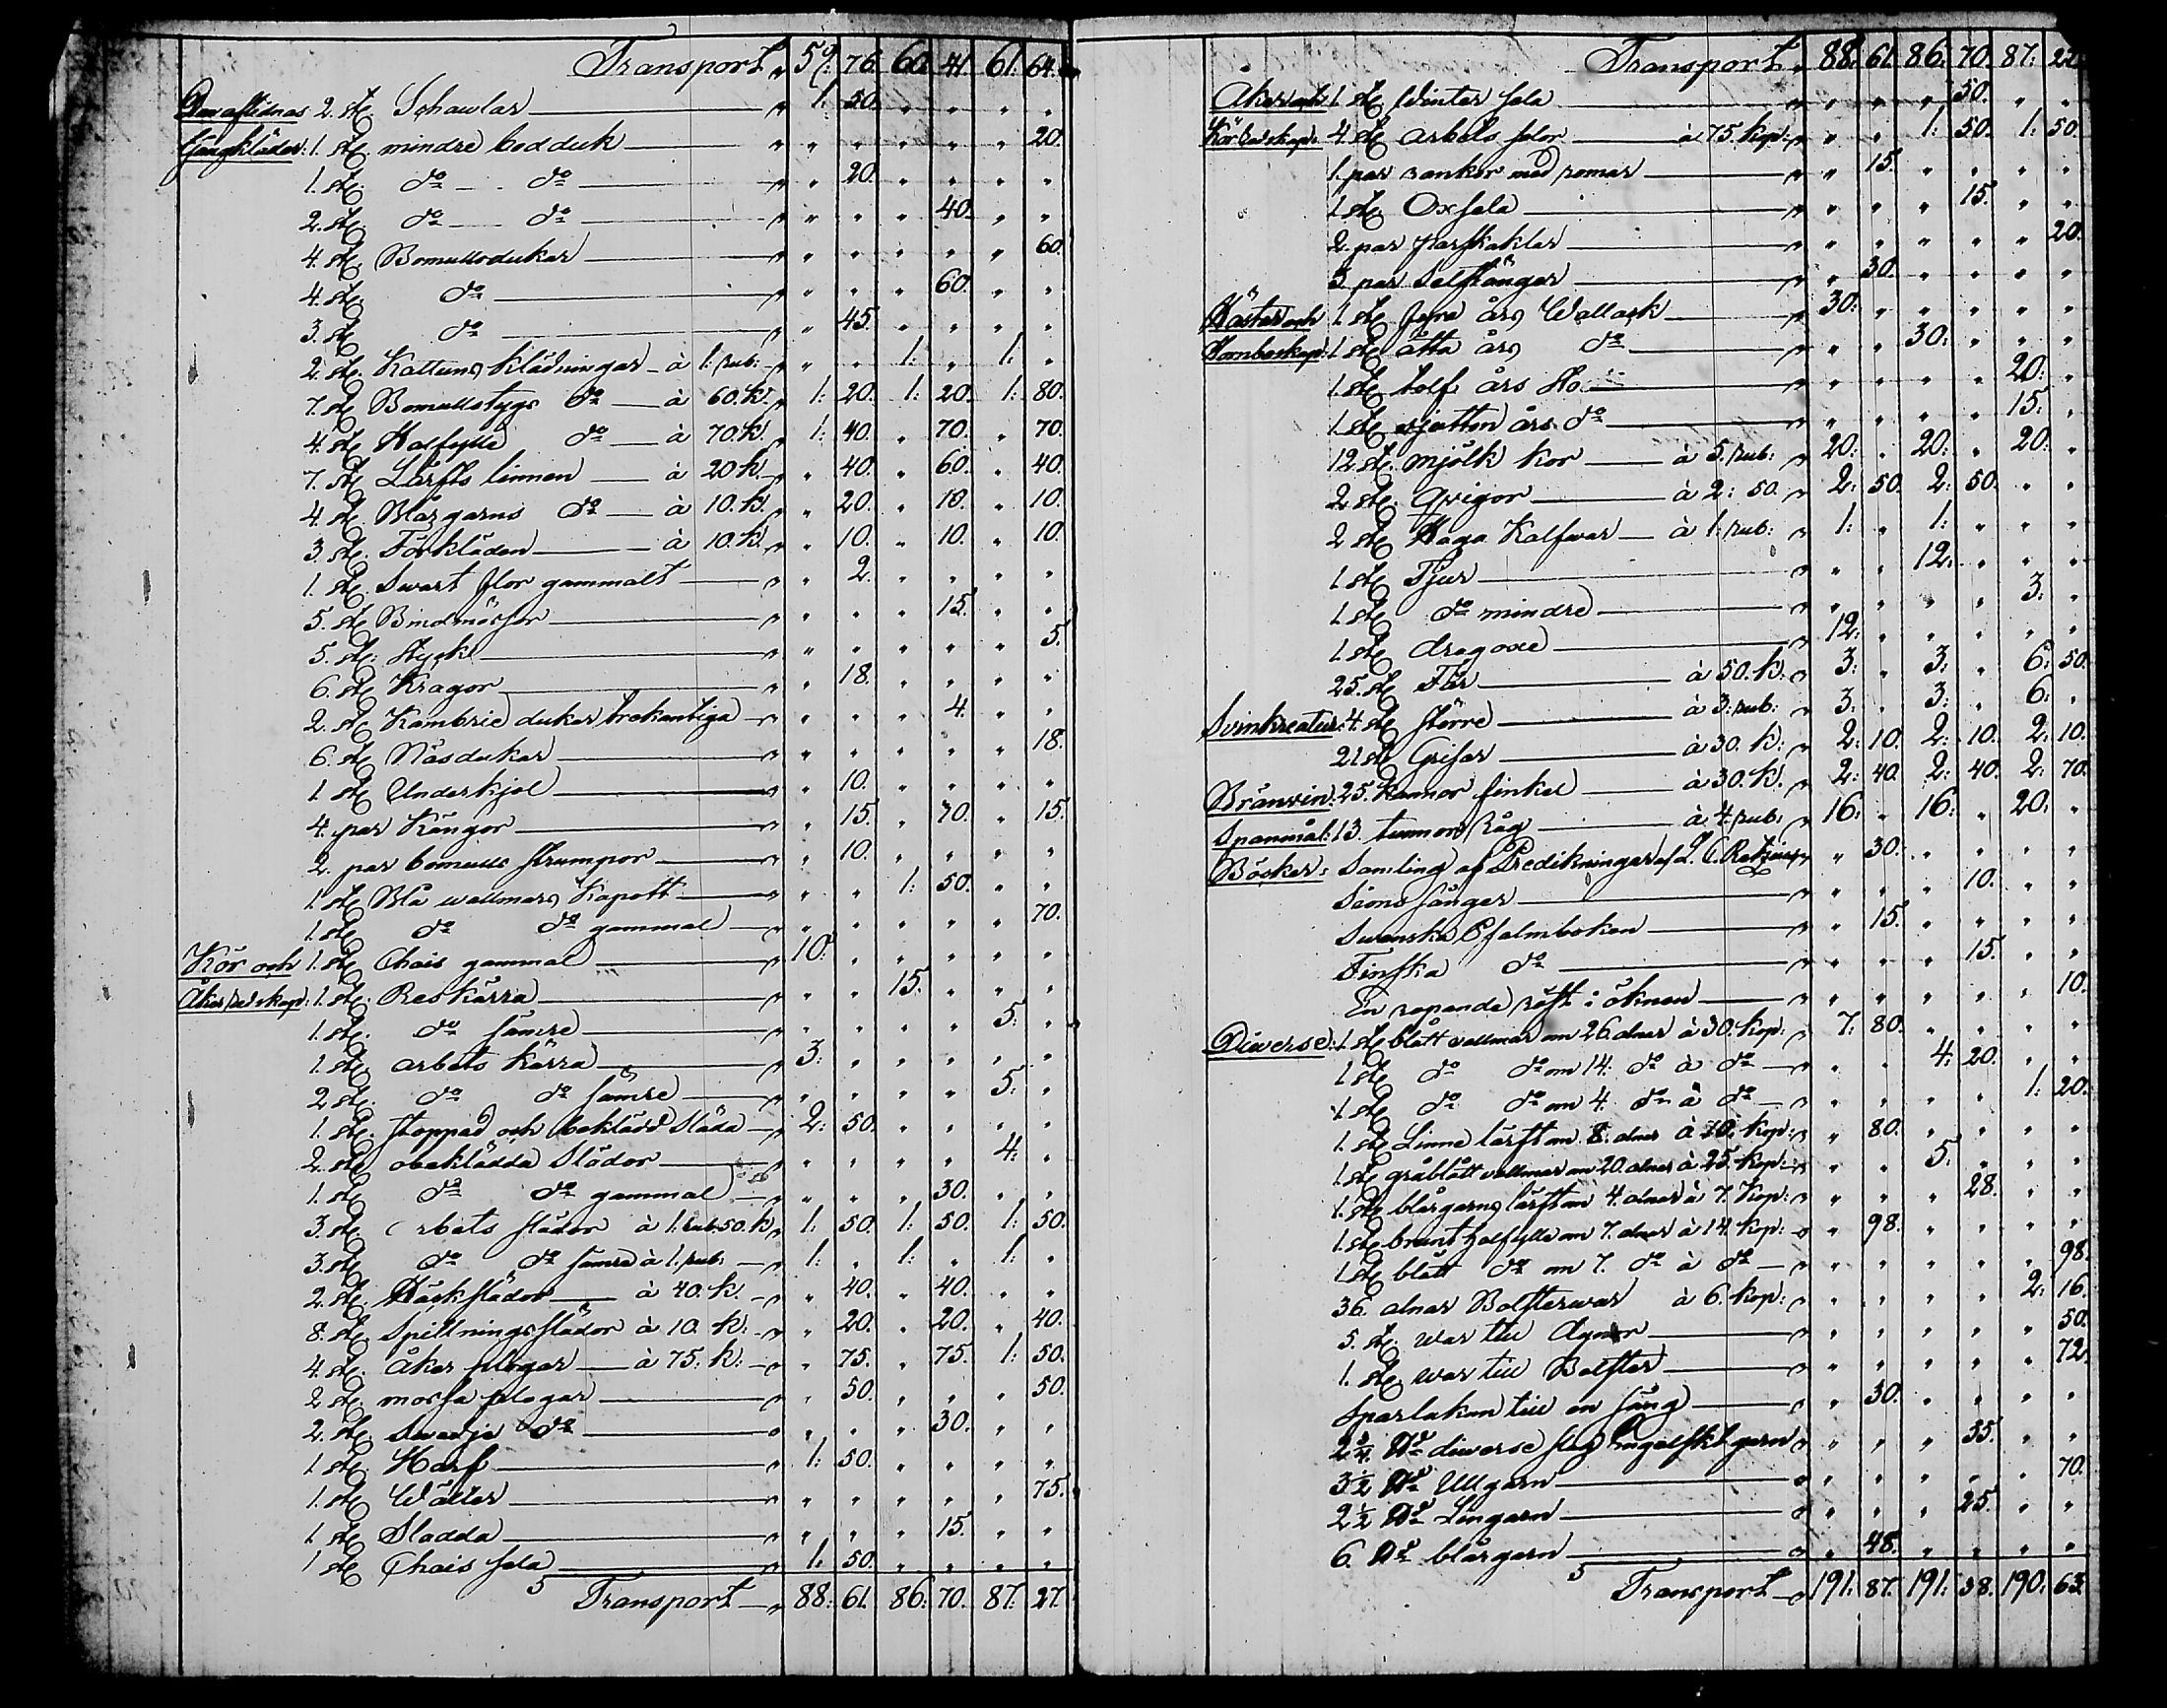 Transport „ 59: 76. 60: 41. 61: 64.
Den aflidnas 2. st. Schawlar „ 1: 50. „ „ „ „
Gångkläder: 1. st. mindre bodduk „ „ „ „ „ „ 20.
1. st. do do „ „ 20. „ „ „ „
2. st. do do „ „ „ „ 40. „ „
4. st. Bomullsdukar „ „ „ „ „ „ 60.
4. st. do „ „ „ „ 60. „ „
3. st. do „ „ 45. „ „ „ „
2. st. Kattuns klädningar à 1: rub: „ „ „ 1: „ 1: „
7. st. Bomullstygs do à 60. k. „ 1: 20. 1: 20. 1: 80.
4. st. Halfylle do à 70. k. „ 1: 40. „ 70. „ 70.
7. st. Lärfts linnen à 20 k. „ „ 40. „ 60. „ 40.
4. st. Blårgarns do à 10. k. „ „ 20. „ 10. „ 10.
3. st. Förkläden à 10. k. „ „ 10. „ 10. „ 10.
1. st. Swart flor gammalt „ „ 2. „ „ „ „
5. st. Bindmössor „ „ „ „ 15. „ „
5. st. Stycke „ „ „ „ „ „ 5.
6. st. Kragor „ „ 18. „ „ „ „
2. st. Kambric dukar trekantiga „ „ „ „ 4. „ „
6. st. Näsdukar „ „ „ „ „ „ 18.
1. st. Underkjol „ „ 10. „ „ „ „
4. par Kängor „ „ 15. „ 70. „ 15.
2. par bomulls strumpor „ „ 10. „ „ „ „
1. st. Blå wallmars Kapott „ „ „ 1: 50. „ „
1. st. do do gammal „ „ „ „ „ „ 70.
Kör och 1. st. Chais gammal „ 10: „ „ „ „ „
Åkerredskap: 1. st. Reskärra „ „ „ 15: „ „ „
1. st. do sämre „ „ „ „ „ 5: „
1. st. arbets kärra „ 3: „ „ „ „ „
2 st. do do sämre „ „ „ „ „ 5: „
1. st. stoppad och beklädd Släda „ 2: 50. „ „ „ „
2. st. obeklädda Slädor „ „ „ „ „ 4: „
1. st. do do gammal „ „ „ „ 30. „ „
3. st. arbets slädor à 1: rub. 50. k. „ 1: 50. 1: 50. 1: 50.
3. st. do do sämre à 1. rub: „ 1: „ 1: „ 1: „
2. st. Häckslädor à 40. k. „ „ 40. „ 40. „ „
8. st. Spillningsslädor à 10. k: „ „ 20. „ 20. „ 40.
4. st. Åker plogar à 75. k: „ „ 75. „ 75. 1: 50.
2 st. mossa plogar „ „ 50. „ „ „ 50.
2. st. Swedje do „ „ „ „ 30. „ „
1. st. Harf „ 1: 50. „ „ „ „
1. st. Wälter „ „ „ „ „ „ 75.
1. st. Sladda „ „ „ „ 15. „ „
1 st. Chais sela „ 1: 50. „ „ „ „
Transport „ 88: 61. 86: 70. 87: 27.
Transport „ 88: 61. 86: 70. 87: 27.
Åker och 1. st. Winter sela „ „ „ „ 50. „ „
Körredskap: 4 st. arbets selor à 75. kop: „ „ „ 1: 50. 1: 50.
1. par rankor med remar „ „ 15. „ „ „ „
1 st. Oxsela „ „ „ „ 15. „ „
2. par parskaklar „ „ „ „ „ „ 20.
3 par Selstänger „ „ 30. „ „ „ „
Hästar och 1. st. fyra års Wallack „ 30: „ „ „ „ „
Hornboskap: 1 st. åtta års do „ „ „ 30: „ „ „
1. st. tolf års Sto „ „ „ „ „ 20: „
1. st. sjutton års do „ „ „ „ „ 15: „
12 st. mjölk kor à 5. rub: „ 20: „ 20: „ 20: „
2 st. Qvigor à 2: 50. „ 2: 50. 2: 50. „ „
2 st. Kalfwar à 1: rub: „ 1: „ 1: „ „ „
1. st. Tjur „ „ „ 12: „ „ „
1. st. do mindre „ „ „ „ „ 3: „
1. st. dragoxe „ 12: „ „ „ „ „
25. st. Får à 50. k: „ 3: „ 3: „ 6: 50.
Svinkreatur: 4. st. större à 3: rub: „ 3: „ 3: „ 6: „
21 st. Grisar à 30. k: „ 2: 10. 2: 10. 2: 10.
Bränvin: 25. Kannor finkel à 30. k. „ 2: 40. 2: 40. 2: 70.
Spanmål: 13. tunnor Råg à 4. rub: „ 16: „ 16: „ 20: „
Böcker: Samling af Predikningar af „ „ 30. „ „ „ „
Sions sånger „ „ „ „ 10. „ „
Swenska Psalmboken „ „ 15. „ „ „ „
Finska do „ „ „ „ 15. „ „
En ropande röst i öknen „ „ „ „ „ „ 10.
Diverse: 1. st. blått vallmar om 26. alnar à 30. kop: „ 7: 80. „ „ „ „
1. st. do do om 14: do à do „ „ „ 4: 20. „ „
1. st. do do om 4. do à do „ „ „ „ „ 1: 20.
1. st. Linne lärft om 8. alnar à 10. kop: „ „ 80. „ „ „ „
1. st. gråblått vallmar om 20. alnar à 25. kop: „ „ „ 5: „ „ „
1. st. blårgarns lärft om 4. alnar à 7. Kop: „ „ „ „ 28. „ „
1. st. brunt halfylle om 7. alnar à 14. kop: „ „ 98. „ „ „ „
1. st. blått do om 7. do à do „ „ „ „ „ „ 98.
36. alnar Bolsterwar à 6. kop: „ „ „ „ „ 2: 16.
5. st. war till dynor „ „ „ „ „ „ 50.
1. st. war till Bolster „ „ „ „ „ „ 72.
Sparlakan till en säng „ „ 30. „ „ „ „
2 3/4. diverse slag Engelskt garn „ „ „ „ 55. „ „
3 1/2 Ullgarn „ „ „ „ „ „ 70.
2 1/2 Lingarn „ „ „ „ 25. „ „
6. blårgarn „ „ 48. „ „ „ „
Transport „ 191: 87. 191: 38. 190: 63.